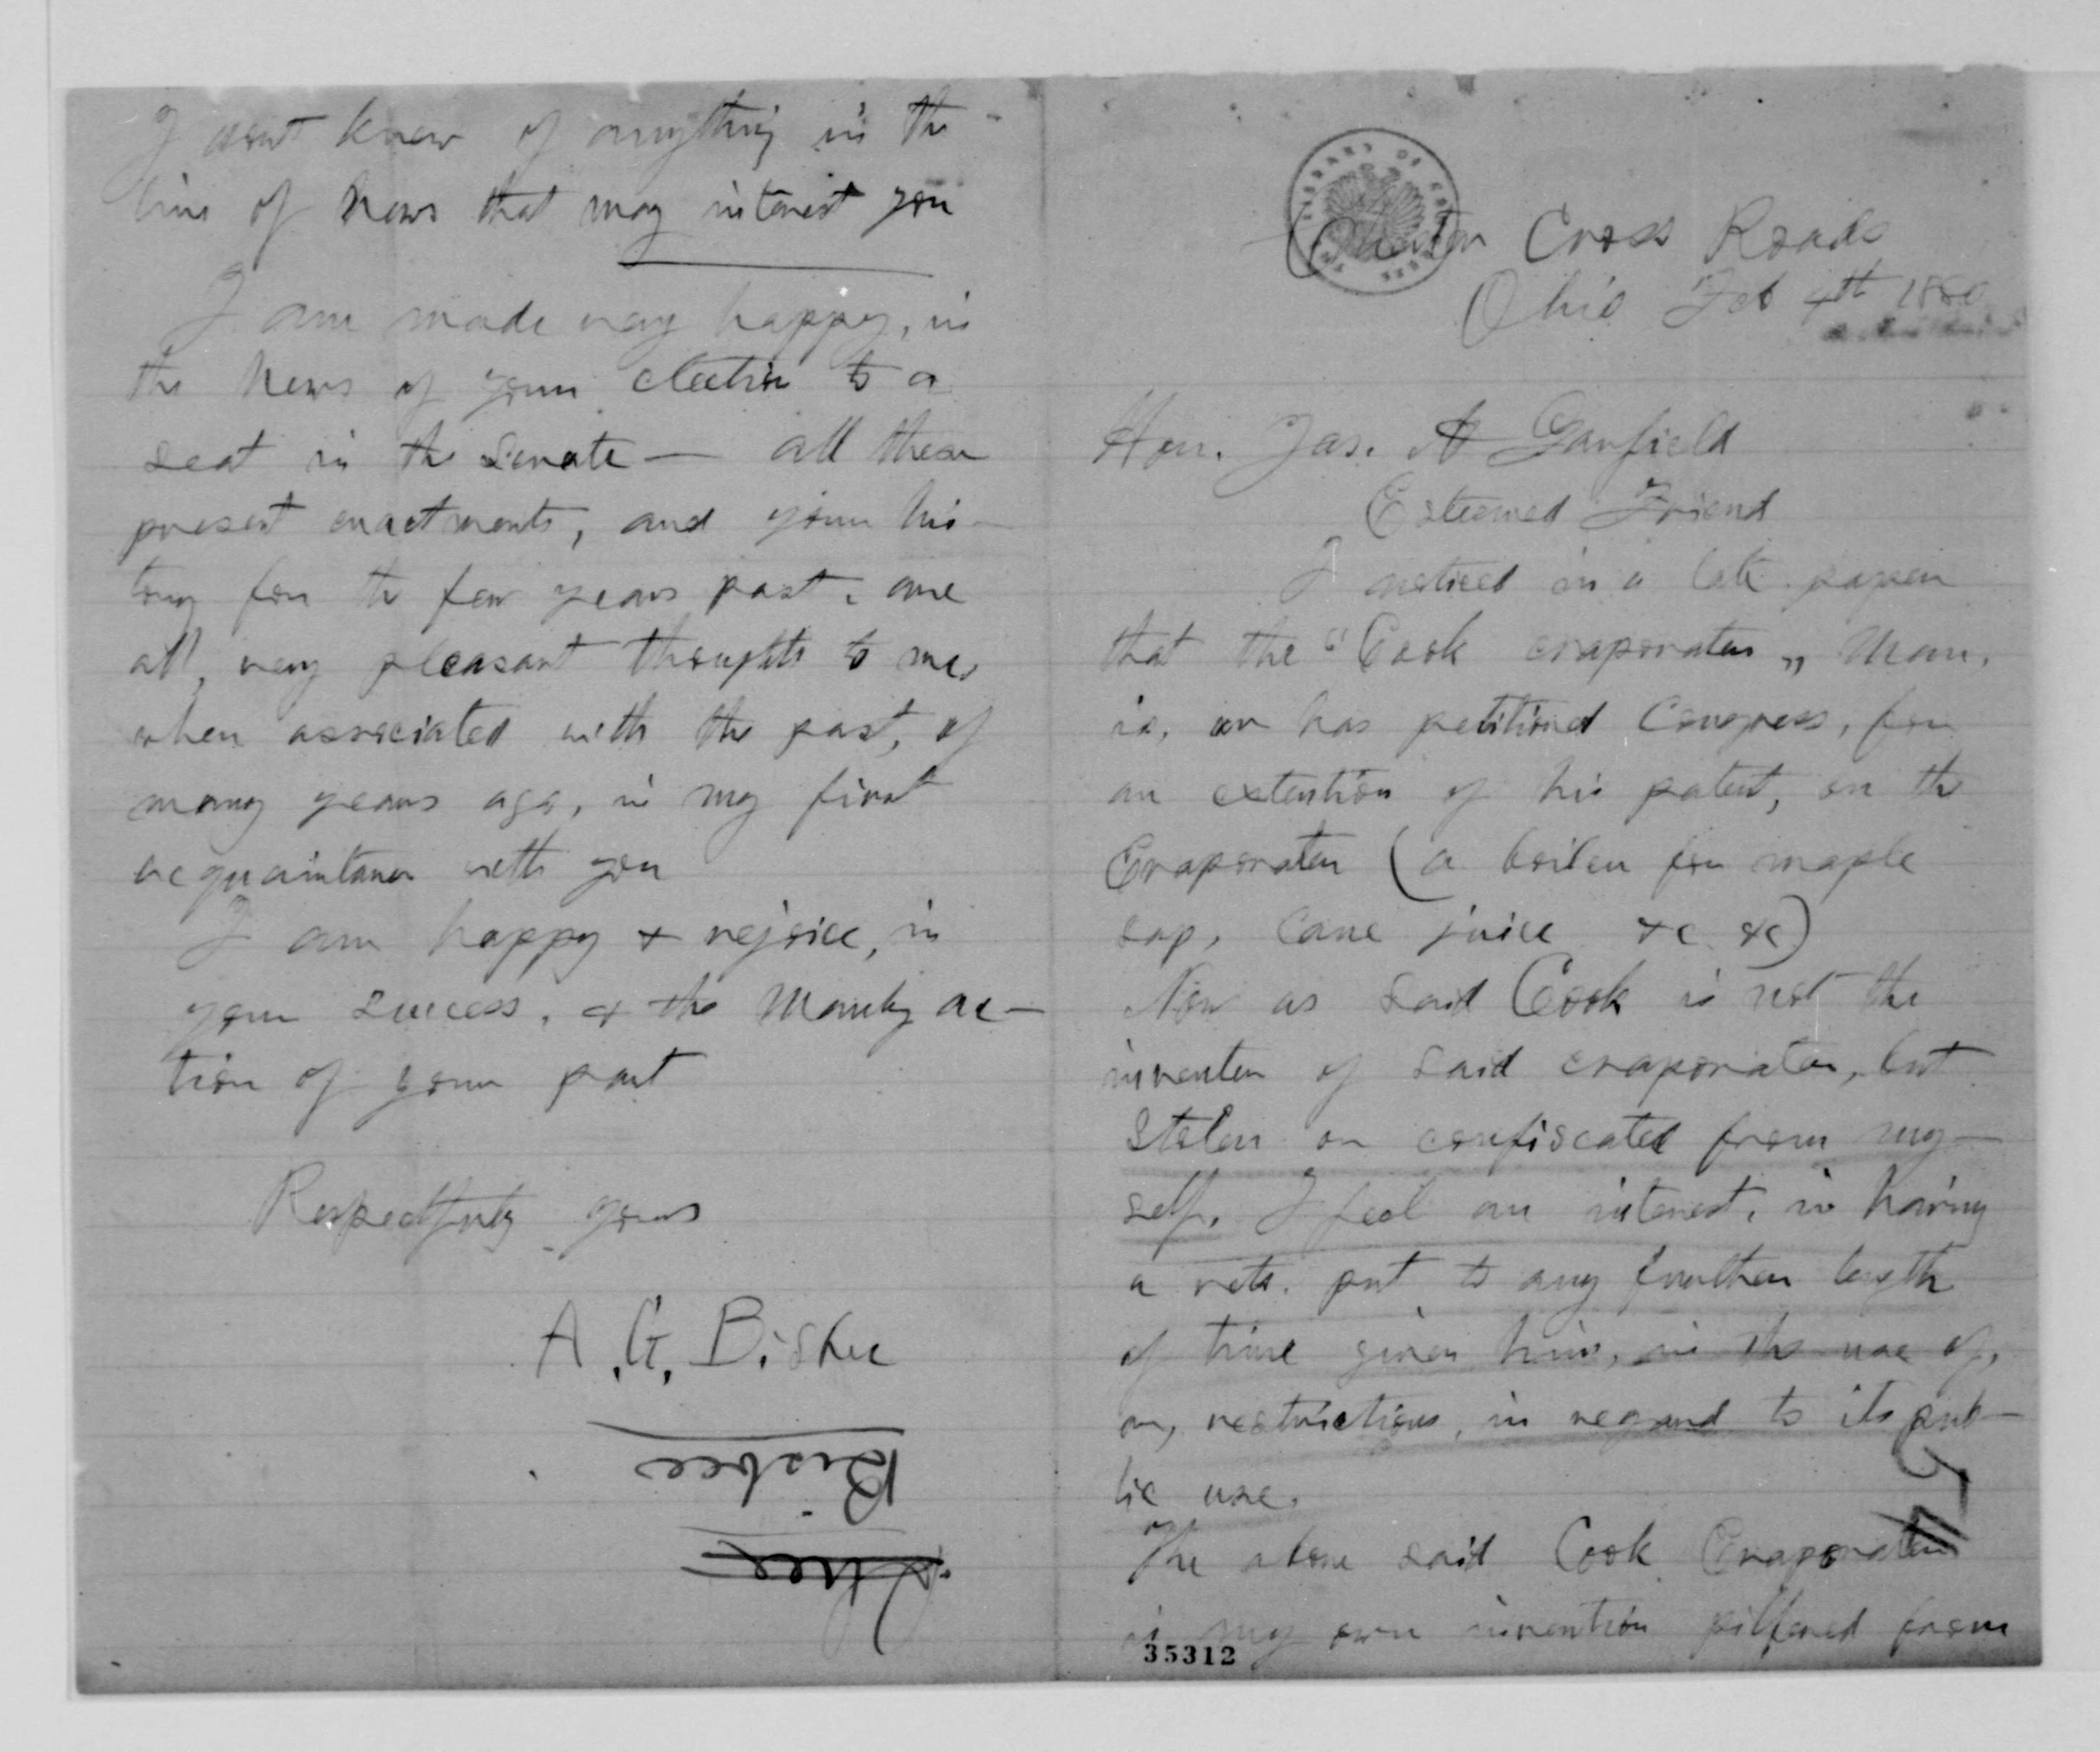 Chester Cross Roads
Ohio Feb 4th 1880
Hon. Jas. A Garfield
Esteemed Friend
I noticed in a late paper
that the "Cook evaporator„ Man,
is, or has petitiond Congress, for
an extention of his patent, on the
Evaporator (a boiler for maple
sap, Cane juice &c &c)
Now as said Cook is not the
inventer of said evaporator, but
Stolen or confiscated from my-
self, I feel an interest, in having
a veto put to any further length
of time given him, in the use of,
or, restrictions, in regard to its pub-
lic use.
The above said Cook Evaporator
is my own invention pilfered from
35312
I dont know of anything in the
line of News that may interest you
I am made very happy, in
the News of your election to a
seat in the Senate — all these
present enactments, and your his-
tory for the few years past, are
all, very pleasant thoughts to me,
when associated with the past, of
many years ago, in my first
acquaintance with you
I am happy & rejoice, in
your success, & the Manly ac-
tion of your part
Respectfuly yours
A. G. Bisbee
Bisbee